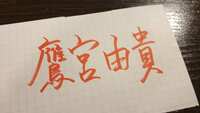 鷹宮由貴